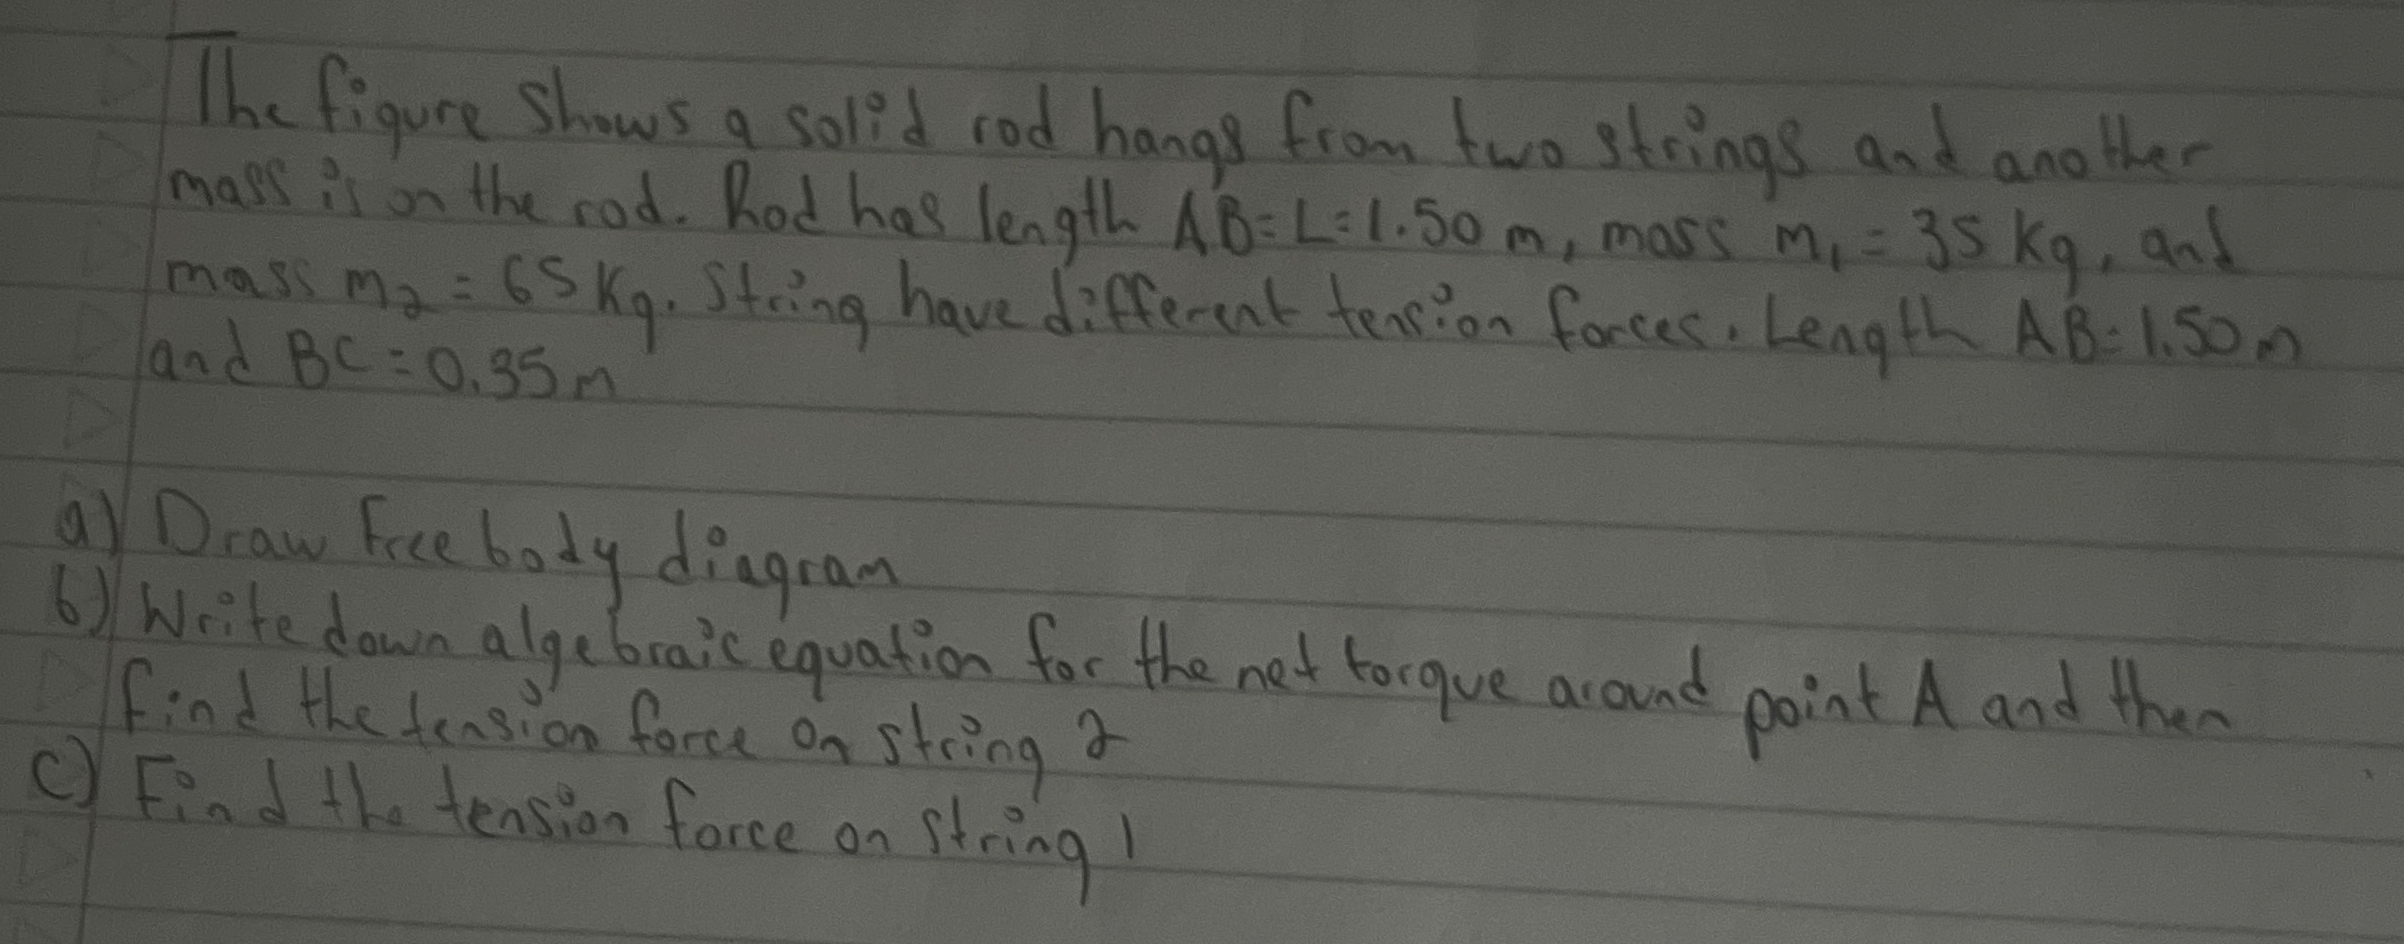 The figure shows a solid rod hangs from two strings and another
mass is on the rod. Rod has length AB=L=1.50 m, mass m₁ = 35 kg, and
mass m₂ = 65 kg. String have different tension forces. Length AB=1.50 m
and BC=0.35 m
a) Draw Free body diagram
b) Write down algebraic equation for the net torque around point A and then
find the tension force on string 2
c) Find the tension force on string 1